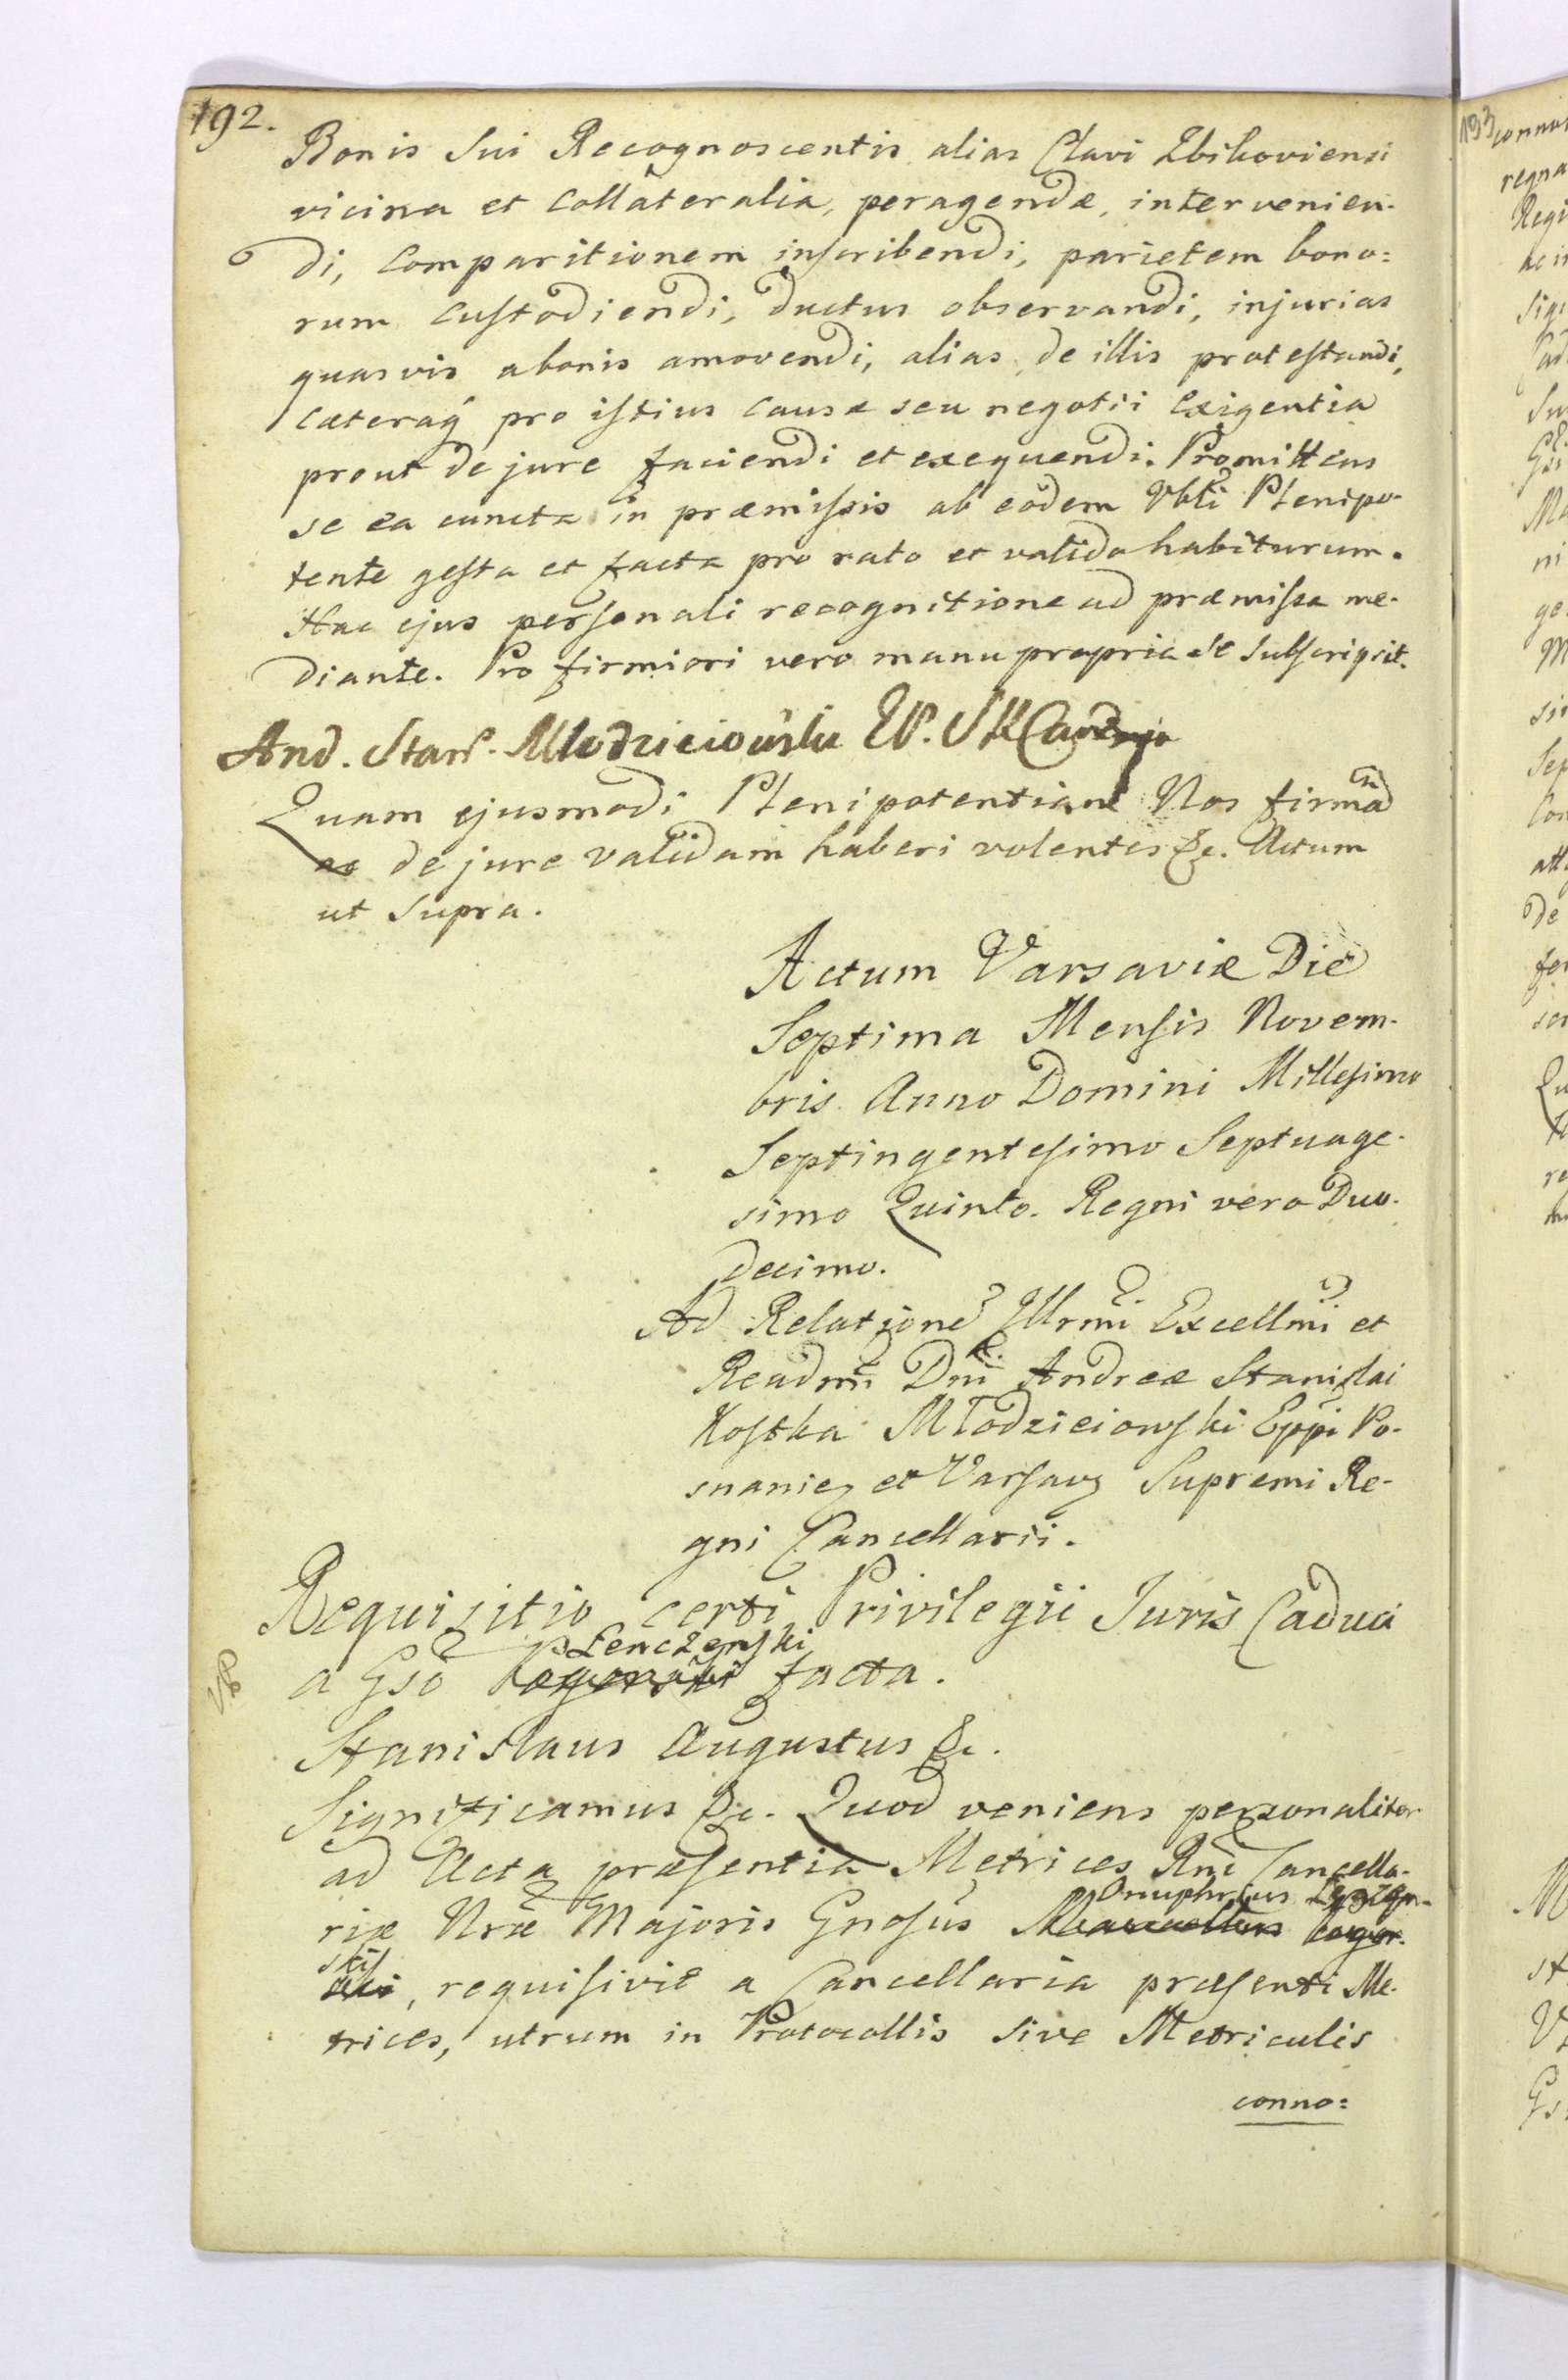 192.
Bonis Sui Recognoscentis alias Clavi Zbikoviensi
vicina et Collateralia, peragendæ, intervenien-
di, Comparitionem inscribendi, parietem bono=
rum Custodiendi, ductus observandi, injurias
quasvis a bonis amovendi, alias de illis protestandi,
Cæteraq́ pro istius Causæ seu negotii Exigentia
prout de jure faciendi et exequendi. Promittens
se ea cuncta in præmissis ab eodem Vbli Plenipo-
tente gesta et facta pro rato et valido habiturum.
Hac ejus personali recognitione ad præmissa me-
diante. Pro firmiori vero manu propria se subscripsit.
And. Stan. Młodzieiowski EP.
Quam ejusmodi Plenipotentiam Nos firmã
ac de jure validam haberi volentes &c. Actum
ut Supra.
Actum Varsaviæ Die
Septima Mensis Novem-
bris Anno Domini Millesimo
Septingentesimo Septuage-
simo Quinto. Regni vero Duo-
decimo.
Ad Relationẽ Illrmi Excellmi et
Readmi Dni Andreæ Stanislai
Kostka Młodzieiowski Eppi Po-
snanieȝ et Varsavȝ Supremi Re-
gni Cancellarii.
Requisitio certi Privilegii Juris Caduci
Lenczenski
a Gso facta.
Stanislaus Augustus &c.
Significamus &c. Quod veniens personaliter
ad Acta præsentia Metrices Rni Cancella-
Onuphrius Lenczen-
riæ Nræ Majoris Gnosus
ski
, requisivit a Cancellaria præsenti Me-
trices, utrum in Protocollis sive Metriculis
conno=
193